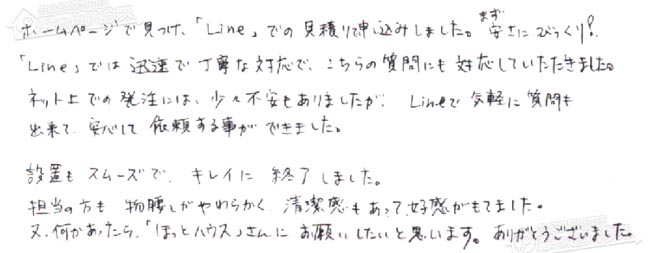 ホームページで見つけ、「Line」での見積りで申込みしました。まず安さにびっくり!
「Line」では迅速で丁寧な対応で、こちらの質問にも対応していただきました。
ネット上での発注には、少々不安もありましたが、Lineで気軽に質問も
出来て、安心して依頼する事ができました。
設置もスムーズで、キレイに終了しました。
担当の方も物腰しがやわらかく、清潔感もあって好感がもてました。
又、何かあったら、「ほっとハウス」さんにお願いしたいと思います。ありがとうございました。